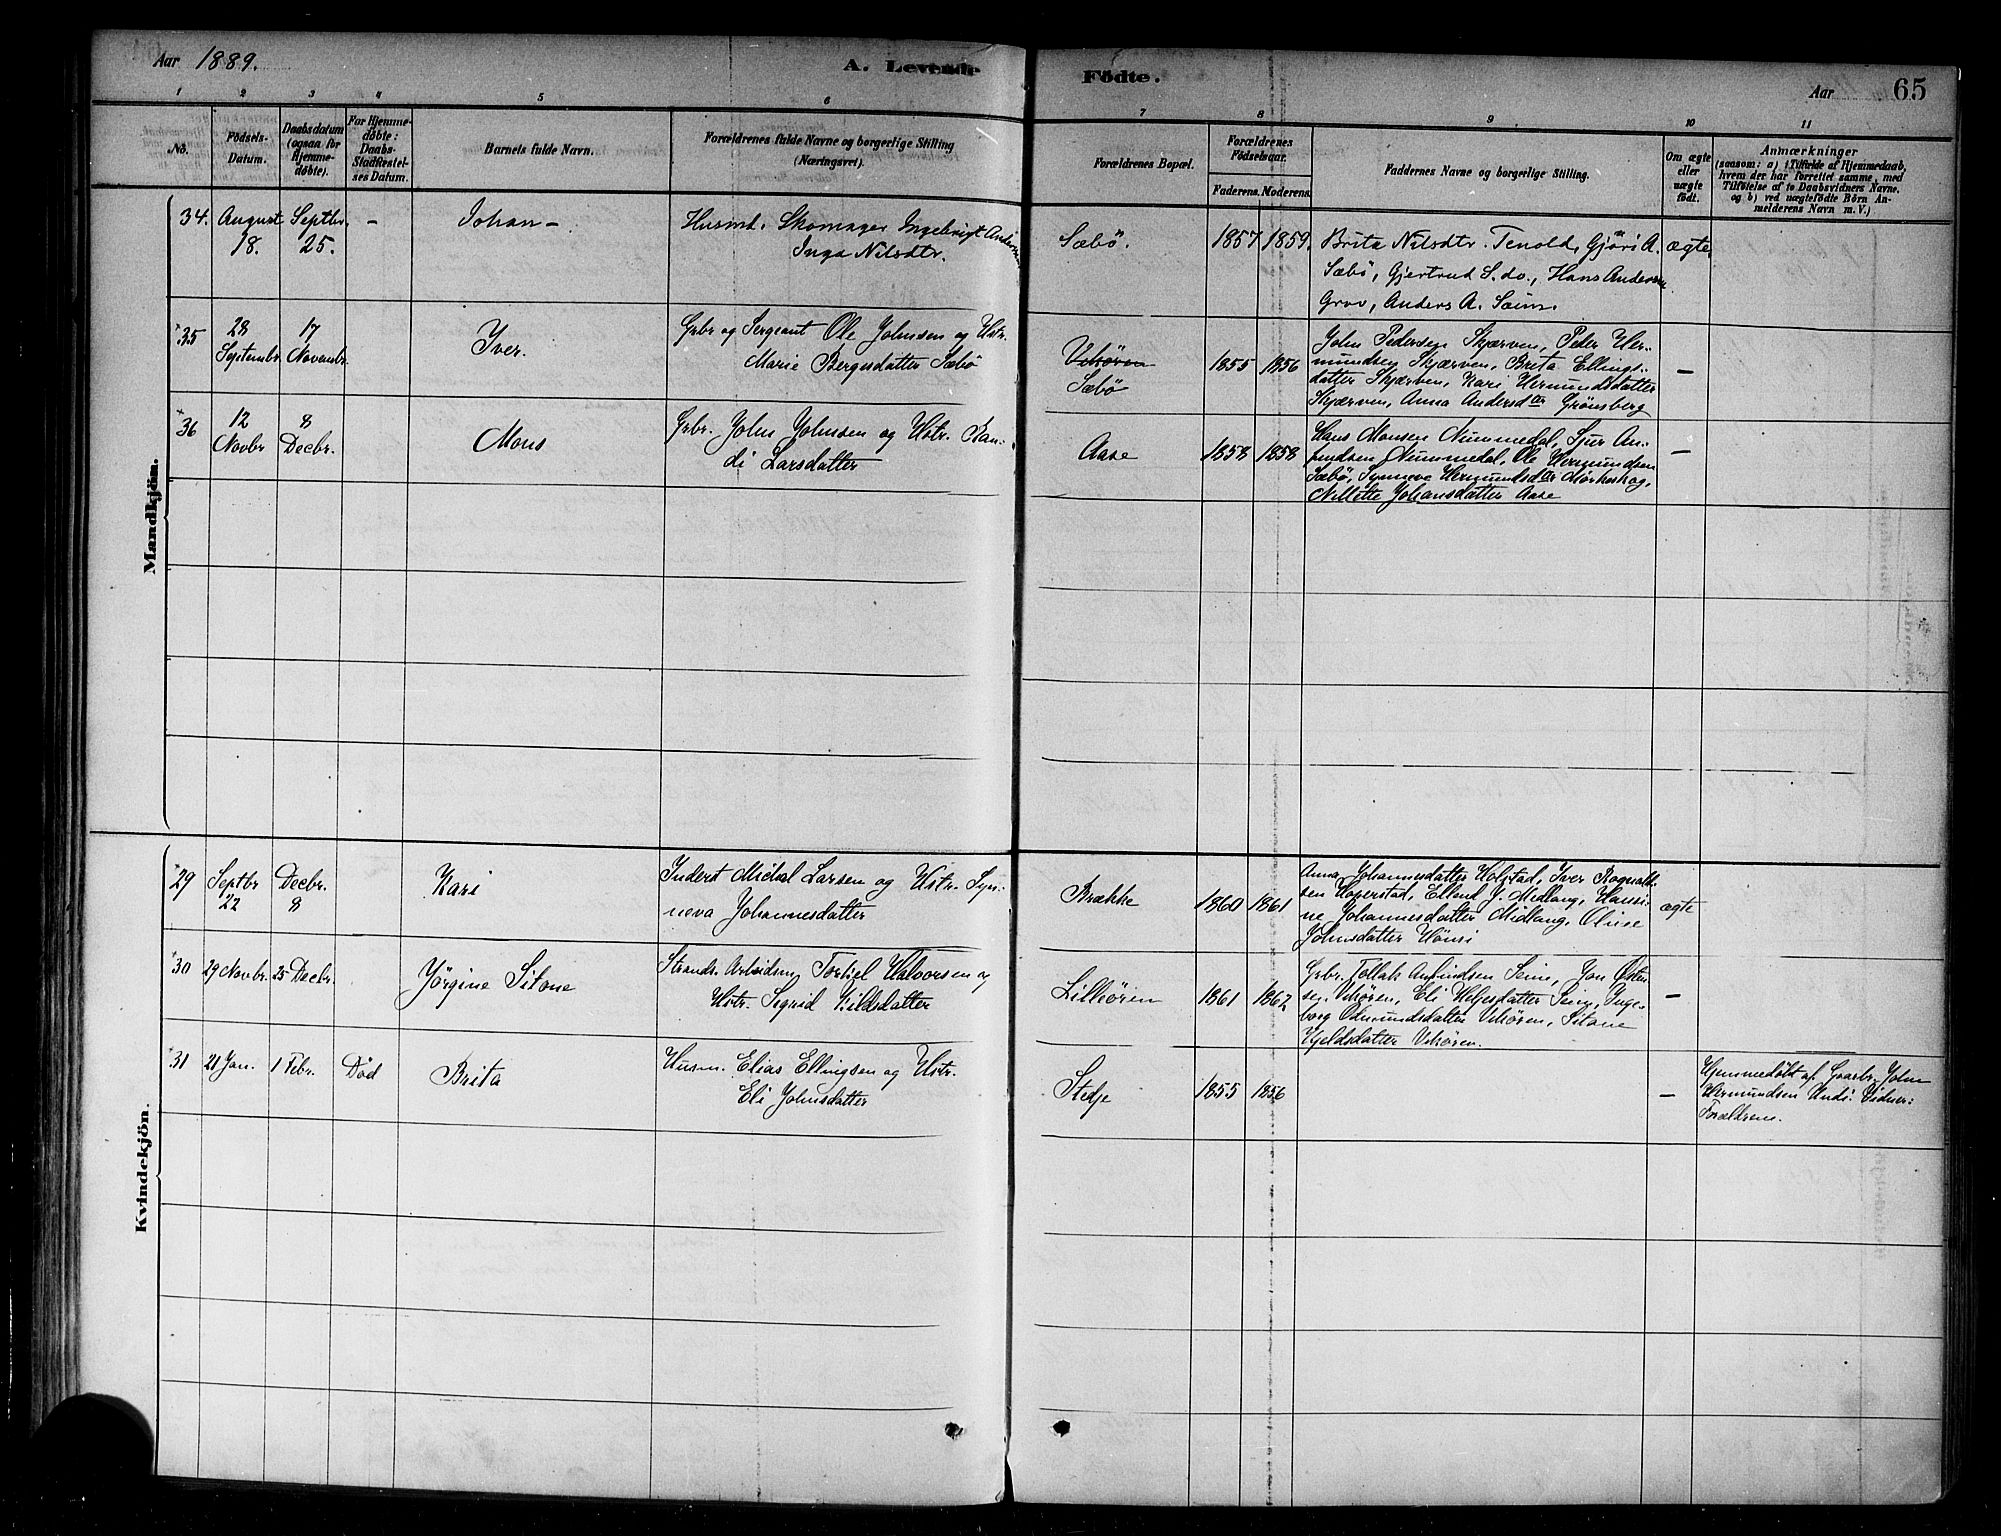 Aar 1889.
A. Levende Födte.
Aar 65
1 2 3 4 5 6 7 8 9 10 11
No.
Födsels-
Datum.
Daabsdatum
(ogsaa for
Hjemme-
döbte).
For Hjemme-
döbte:
Daabs-
Stadfæstel-
ses Datum.
Barnets fulde Navn.
Forældrenes fulde Navne og borgerlige Stilling
(Næringsvei).
Forældrenes Bopæl.
Forældrenes
Födselsaar.
Faderens. Moderens.
Faddernes Navne og borgerlige Stilling.
Om ægte
eller
uægte
födt.
Anmærkninger
(saasom: a) i Tilfælde af Hjemmedaab,
hvem der har forrettet samme, med
Tilföielse af to Daabsvidners Navne,
og b) ved uægtefödte Börn An-
melderens Navn m. V.)
Mandkjön.
34. August
18.
Septbr.
25.
–
Johan –
Husmd. Skomager Ingebrigt Andersen
Inga Nilsdtr.
Sæbö.
1857 1859.
Brita Nilsdtr. Tenold, Gjöri A.
Sæbö, Gjertrud S. do., Hans Andersen
Grov, Anders A. Seim.
ægte.
35
28
Septembr.
17
Novembr.
Iver.
Grbr og Sergeant Ole Johnsen og Hstr.
Marie Bergesdatter Sæbö
Vikören
Sæbö
1855 1856
John Pedersen Skjærven, Peder Her-
mundsen Skjærven, Brita Ellings-
datter Skjærven, Kari Hermundsdatter
Skjærven, Anna Andersdtr Grönsberg
–
36
12
Novbr
8
Decbr.
Mons
Grbr. John Johnsen og Hstr. Ran-
di Larsdatter
Aase
1858 1858
Hans Monsen Nummedal, Sjur An-
findsen Nummedal, Ole Hermundsen
Sæbö, Synneve Hermundsdtr Mörkeskog,
Nillette Johansdatter Aase
–
Kvindekjön.
29
Septbr
22
Decbr.
8
Kari
Inderst Mickel Larsen og Hstr. Syn-
neva Johannesdatter
Brække
1860 1861
Anna Johannesdatter Holstad, Iver Rognald-
sen Hoperstad, Elland J. Midlang, Hansi-
ne Johannesdatter Midlang, Oline
Johnsdatter Hönsi
ægte
30 29 Novbr. 25 Decbr.
Jörgine Sitone
Strands. Arbeidsm. Torkjel Halvorsen og
Hstr. Sigrid Kildsdatter
Lilleören
1861 1862
Grbr. Tollak Anfindsen Seim, Jon Östen-
sen Vikören, Eli Helgesdatter Seim, Inge-
borg Odmundsdatter Vikören, Sitone
Kjeldsdatter Vikören.
–
31 21 Jan. 1 Febr. Död
Brita
Husm. Elias Ellingsen og Hstr.
Eli Johnsdatter
Stedje
1855 1856
–
Hjemmedöbt af Gaardbr. John
Hermundsen Undi. Vidner:
Forældrene.